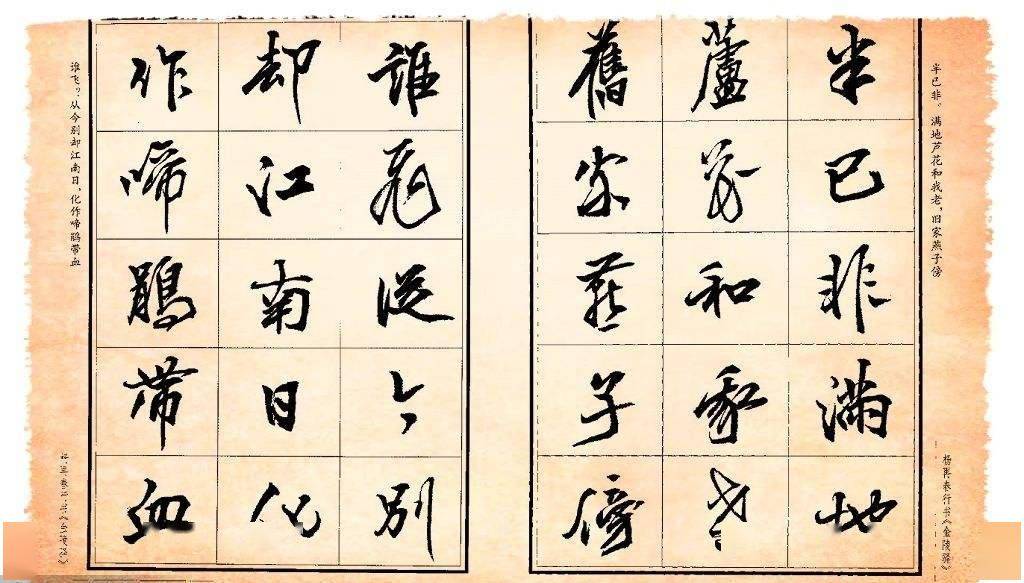 半已非。满地芦花和我老,旧家燕子傍
杨再春行书《金陵驿》
半已非滿地
蘆花和我老
舊家燕子傍
誰飛從今別
却江南日化
作啼鵑帶血
谁飞?从今别却江南日,化作啼鹃带血